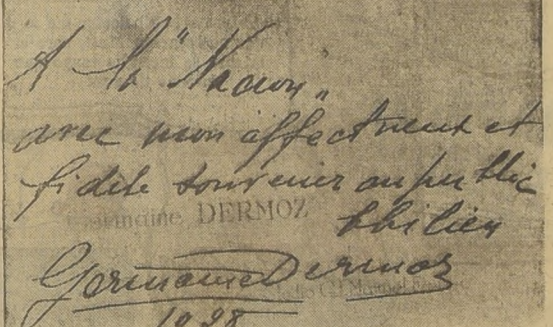 A la "Nacion"
avec mon affectueux et
fidèle souvenir au public
chilien
Germaine DERMOZ
Germaine Dermoz
1928